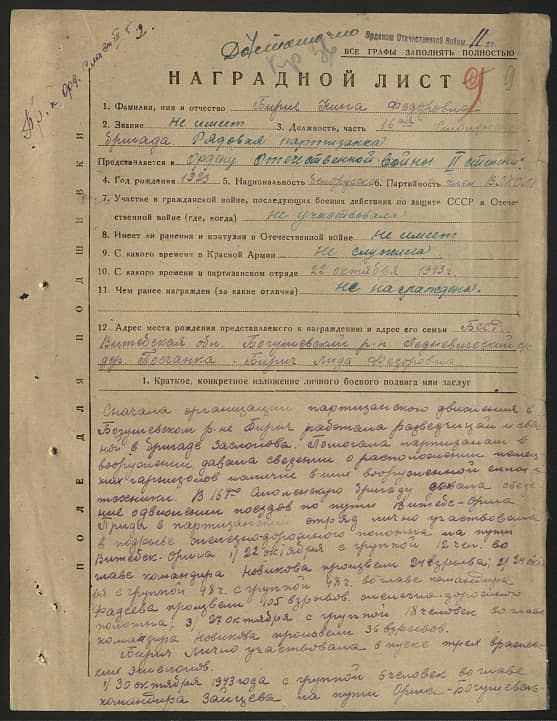 Достаточно
Орденом Отечественной Войны II ст.
ВСЕ ГРАФЫ ЗАПОЛНЯТЬ ПОЛНОСТЬЮ
НАГРАДНОЙ ЛИСТ 9
1. Фамилия, имя и отчество Бирич Нина Федоровна
2. Звание Не имеет 3. Должность, часть 16ая Смоленская
бригада. Рядовая партизанка
Представляется к Ордену Отечественной войны II степени
4. Год рождения 1923 5. Национальность Белорусска 6. Партийность член ВЛКСМ
7. Участие в гражданской войне, последующих боевых действиях по защите СССР и Отече-
ственной войне (где, когда) не участвовала
8. Имеет ли ранения и контузии в Отечественной войне Не имеет
9. С какого времени в Красной Армии Не служила
10. С какого времени в партизанском отряде 22 октября 1943 г.
11 Чем ранее награжден (за какие отличия) не награждена.
12 Адрес места рождения представляемого к награждению и адрес его семьи БССР
Витебская обл. Богушевский р-н
дер. Песчанка. Бирич Лида Федоровна
1. Краткое, конкретное изложение личного боевого подвига или заслуг
Сначала организации партизанского движения в
Богушевском р-не Бирич работала разведчицей и связ-
ной в бригаде Заслонова. Помогала партизанам в
вооружении давала сведении о расположении немец-
ких гарнизонов наличие в них вооруженной силы и
техники. В 16ую Смоленскую бригаду давала сведе-
ние о движении поездов по пути Витебск-Орша
Придя в партизанский отряд лично участвовала
в подрыве железно-дорожного полотна на пути
Витебск-Орша 1) 22 октября с группой 12 чел. во
главе командира Новикова произвели 24 взрыва; 2)
с группой 48 ч. во главе командира
Фадеева произвели 105 взрывов железно-дорожного
полотна; 3 27 октября с группой 18 человек во главе
командира Новикова произвели 36 взрывов.
Бирич лично участвовала в пуске трех вражес-
ких эшелонов.
1) 30 октября 1943 года с группой 6 человек во главе
командира Зайцева на пути Орша-Богушевск
ПОЛЕ ДЛЯ ПОДШИВКИ